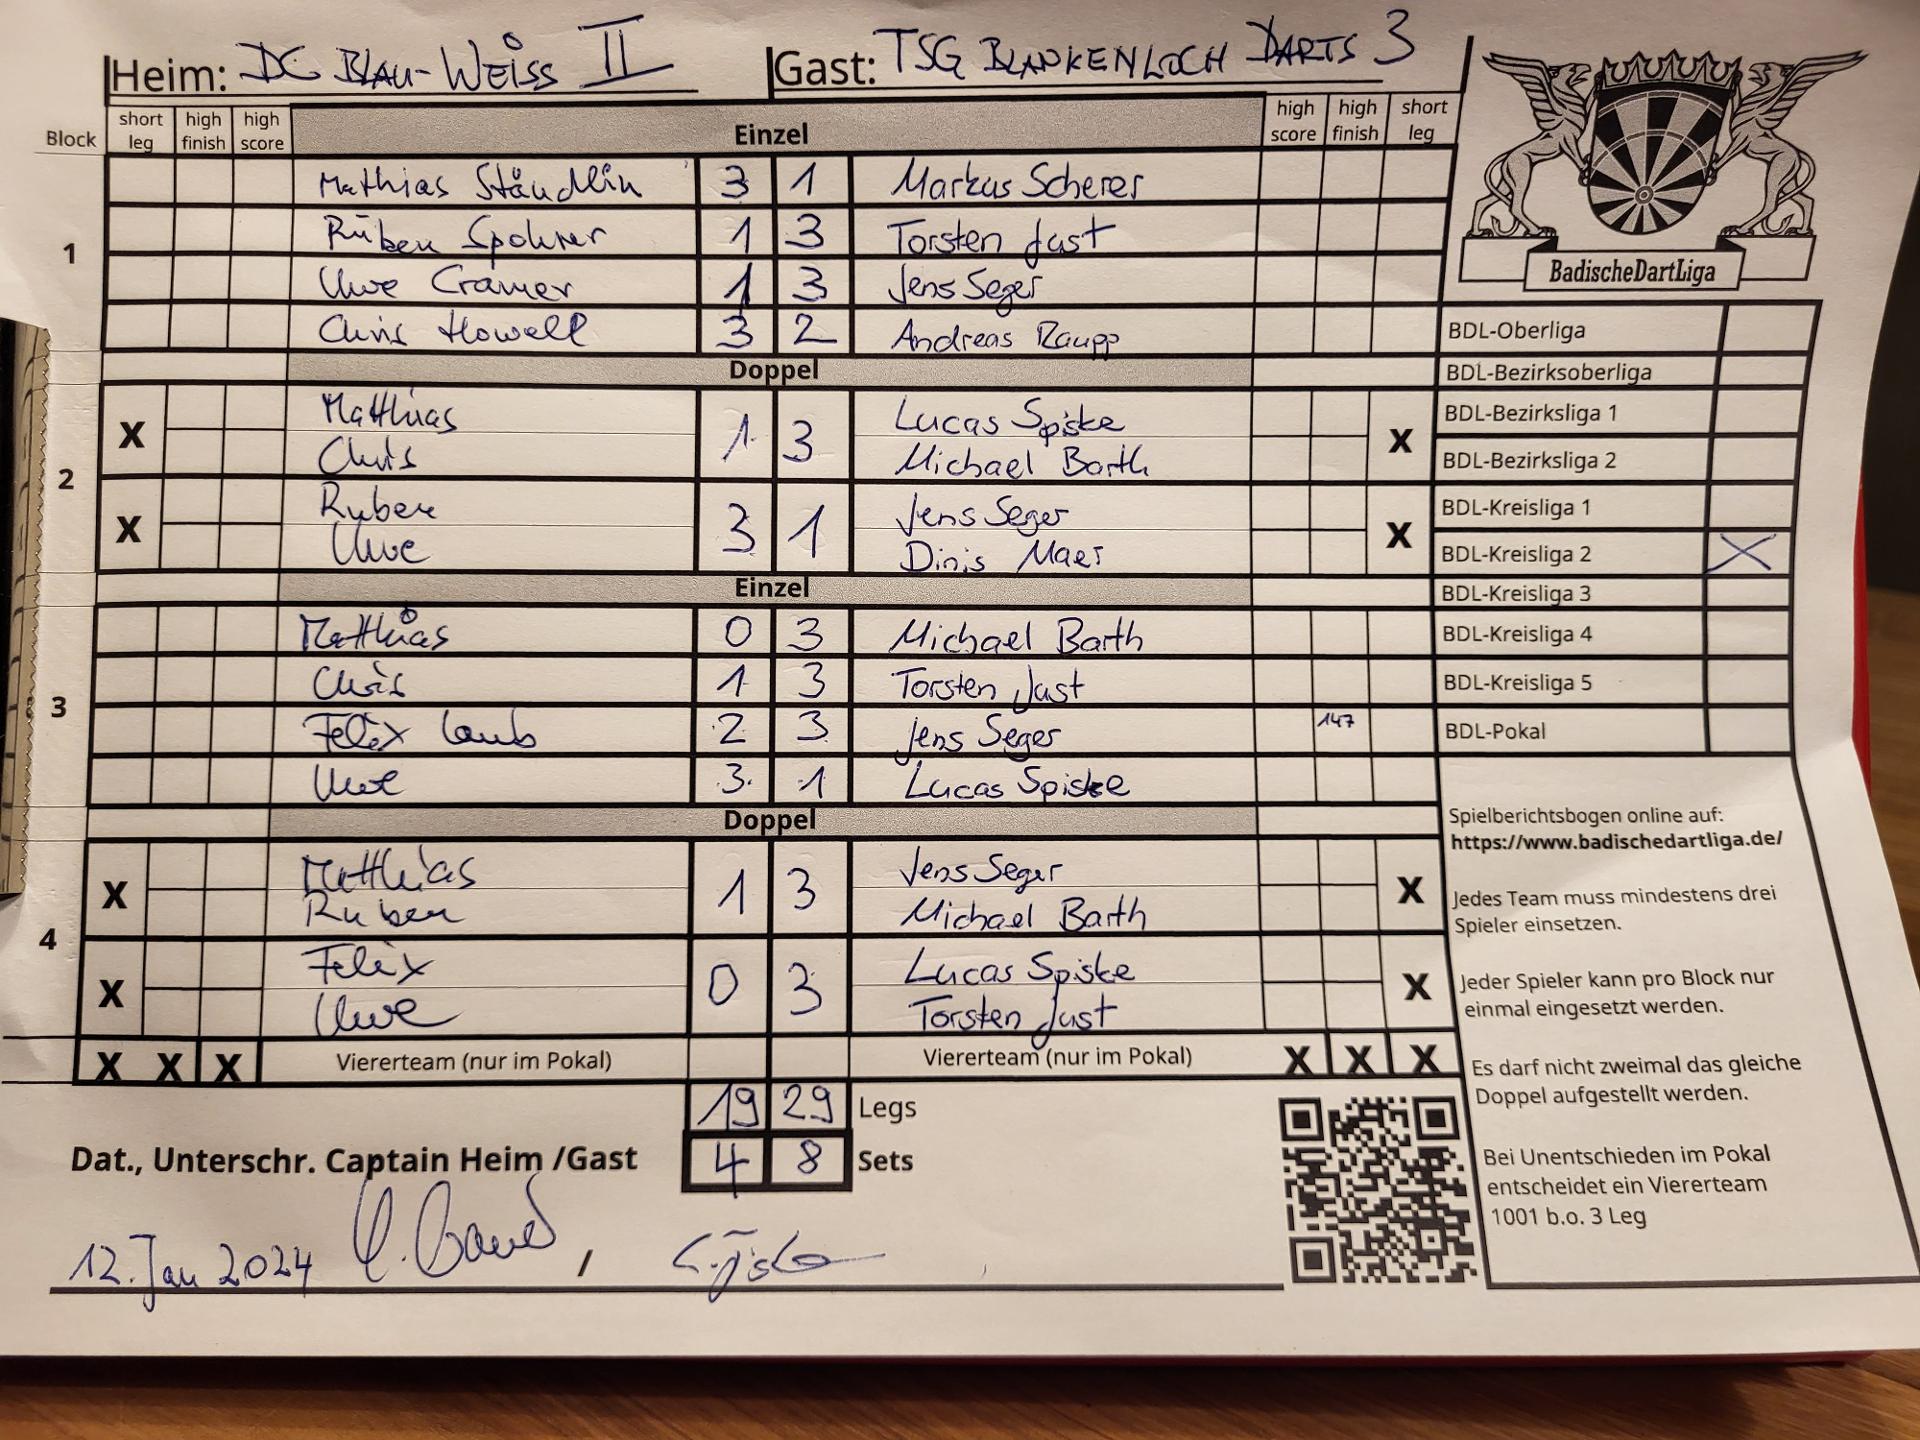 Heim: DC BLAU-WEISS II Gast: TSG BLANKENLOCH DARTS 3
Block short leg high finish high score Einzel high score high finish short leg
1
Mathias Ständlin 3 1 Markus Scherer
Rüben Spohrer 1 3 Torsten Jast
Uwe Cramer 1 3 Jens Seger
Chris Howell 3 2 Andreas Raupp
Doppel
2
X Matthias 1 3 Lucas Spiske X
Chris Michael Barth
X Ruben 3 1 Jens Seger X
Uwe Dinis Maer
Einzel
3
Matthias 0 3 Michael Barth
Chris 1 3 Torsten Just
Felix Laub 2 3 Jens Seger 147
Uwe 3 1 Lucas Spiske
Doppel
4
X Matthias 1 3 Jens Seger X
Ruben Michael Barth
X Felix 0 3 Lucas Spiske X
Uwe Torsten Just
X X X Viererteam (nur im Pokal) Viererteam (nur im Pokal) X X X
19 29 Legs
4 8 Sets
Dat., Unterschr. Captain Heim /Gast
12. Jan 2024 /
BadischeDartLiga
BDL-Oberliga
BDL-Bezirksoberliga
BDL-Bezirksliga 1
BDL-Bezirksliga 2
BDL-Kreisliga 1
BDL-Kreisliga 2 X
BDL-Kreisliga 3
BDL-Kreisliga 4
BDL-Kreisliga 5
BDL-Pokal
Spielberichtsbogen online auf:
https://www.badischedartliga.de/
Jedes Team muss mindestens drei
Spieler einsetzen.
Jeder Spieler kann pro Block nur
einmal eingesetzt werden.
Es darf nicht zweimal das gleiche
Doppel aufgestellt werden.
Bei Unentschieden im Pokal
entscheidet ein Viererteam
1001 b.o. 3 Leg